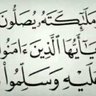 مَلَٰٓئِكَتَهُۥ يُصَلُّونَ
يَٰٓأَيُّهَا ٱلَّذِينَ ءَامَنُوا
عَلَيْهِ وَسَلِّمُوا